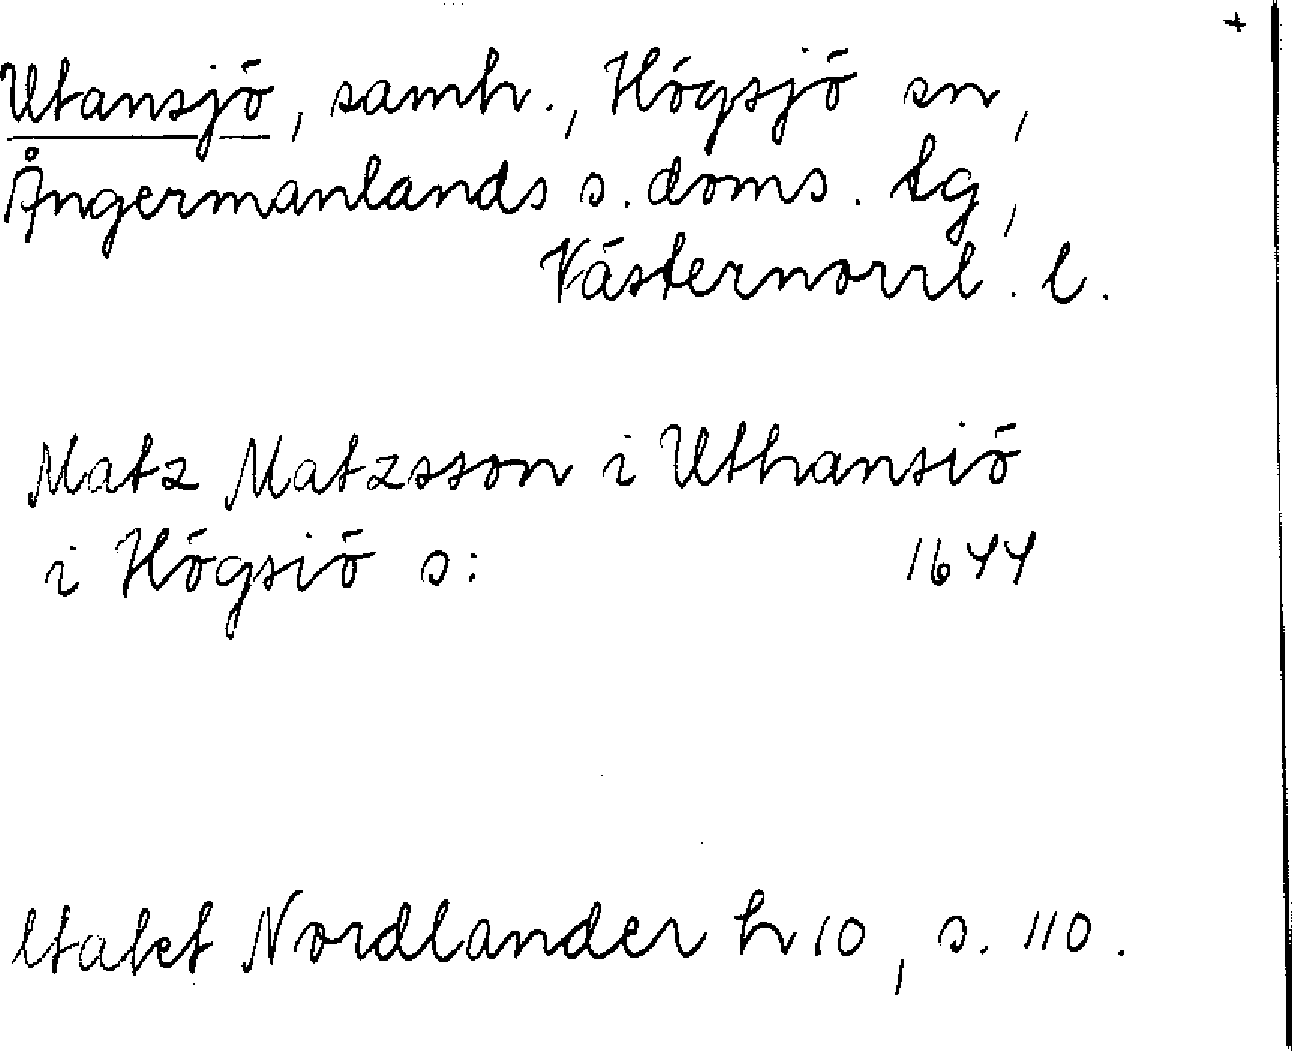 +
Utansjö, samh., Högsjö sn,
Ångermanlands s. doms. tg,
Västernorrl. l.
Matz Matzsson i Uthansiö
i Högsiö s: 1644
Nordlander h 10, s. 110.